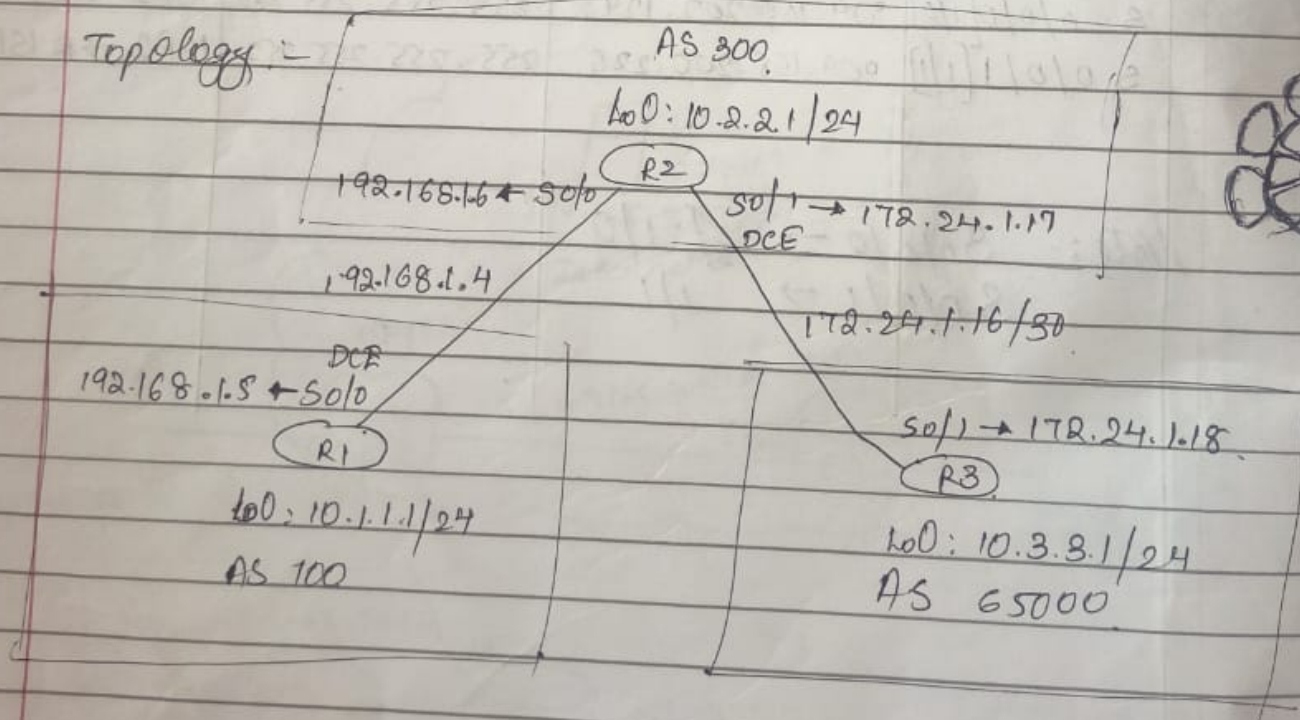 Topology :-
AS 300.
Lo0: 10.2.2.1/24
R2
192.168.1.6 ← S0/0
S0/1 → 172.24.1.17
DCE
192.168.1.4
172.24.1.16/30
DCE
192.168.1.5 ← S0/0
R1
S0/1 → 172.24.1.18
R3
Lo0: 10.1.1.1/24
Lo0: 10.3.3.1/24
AS 100
AS 65000